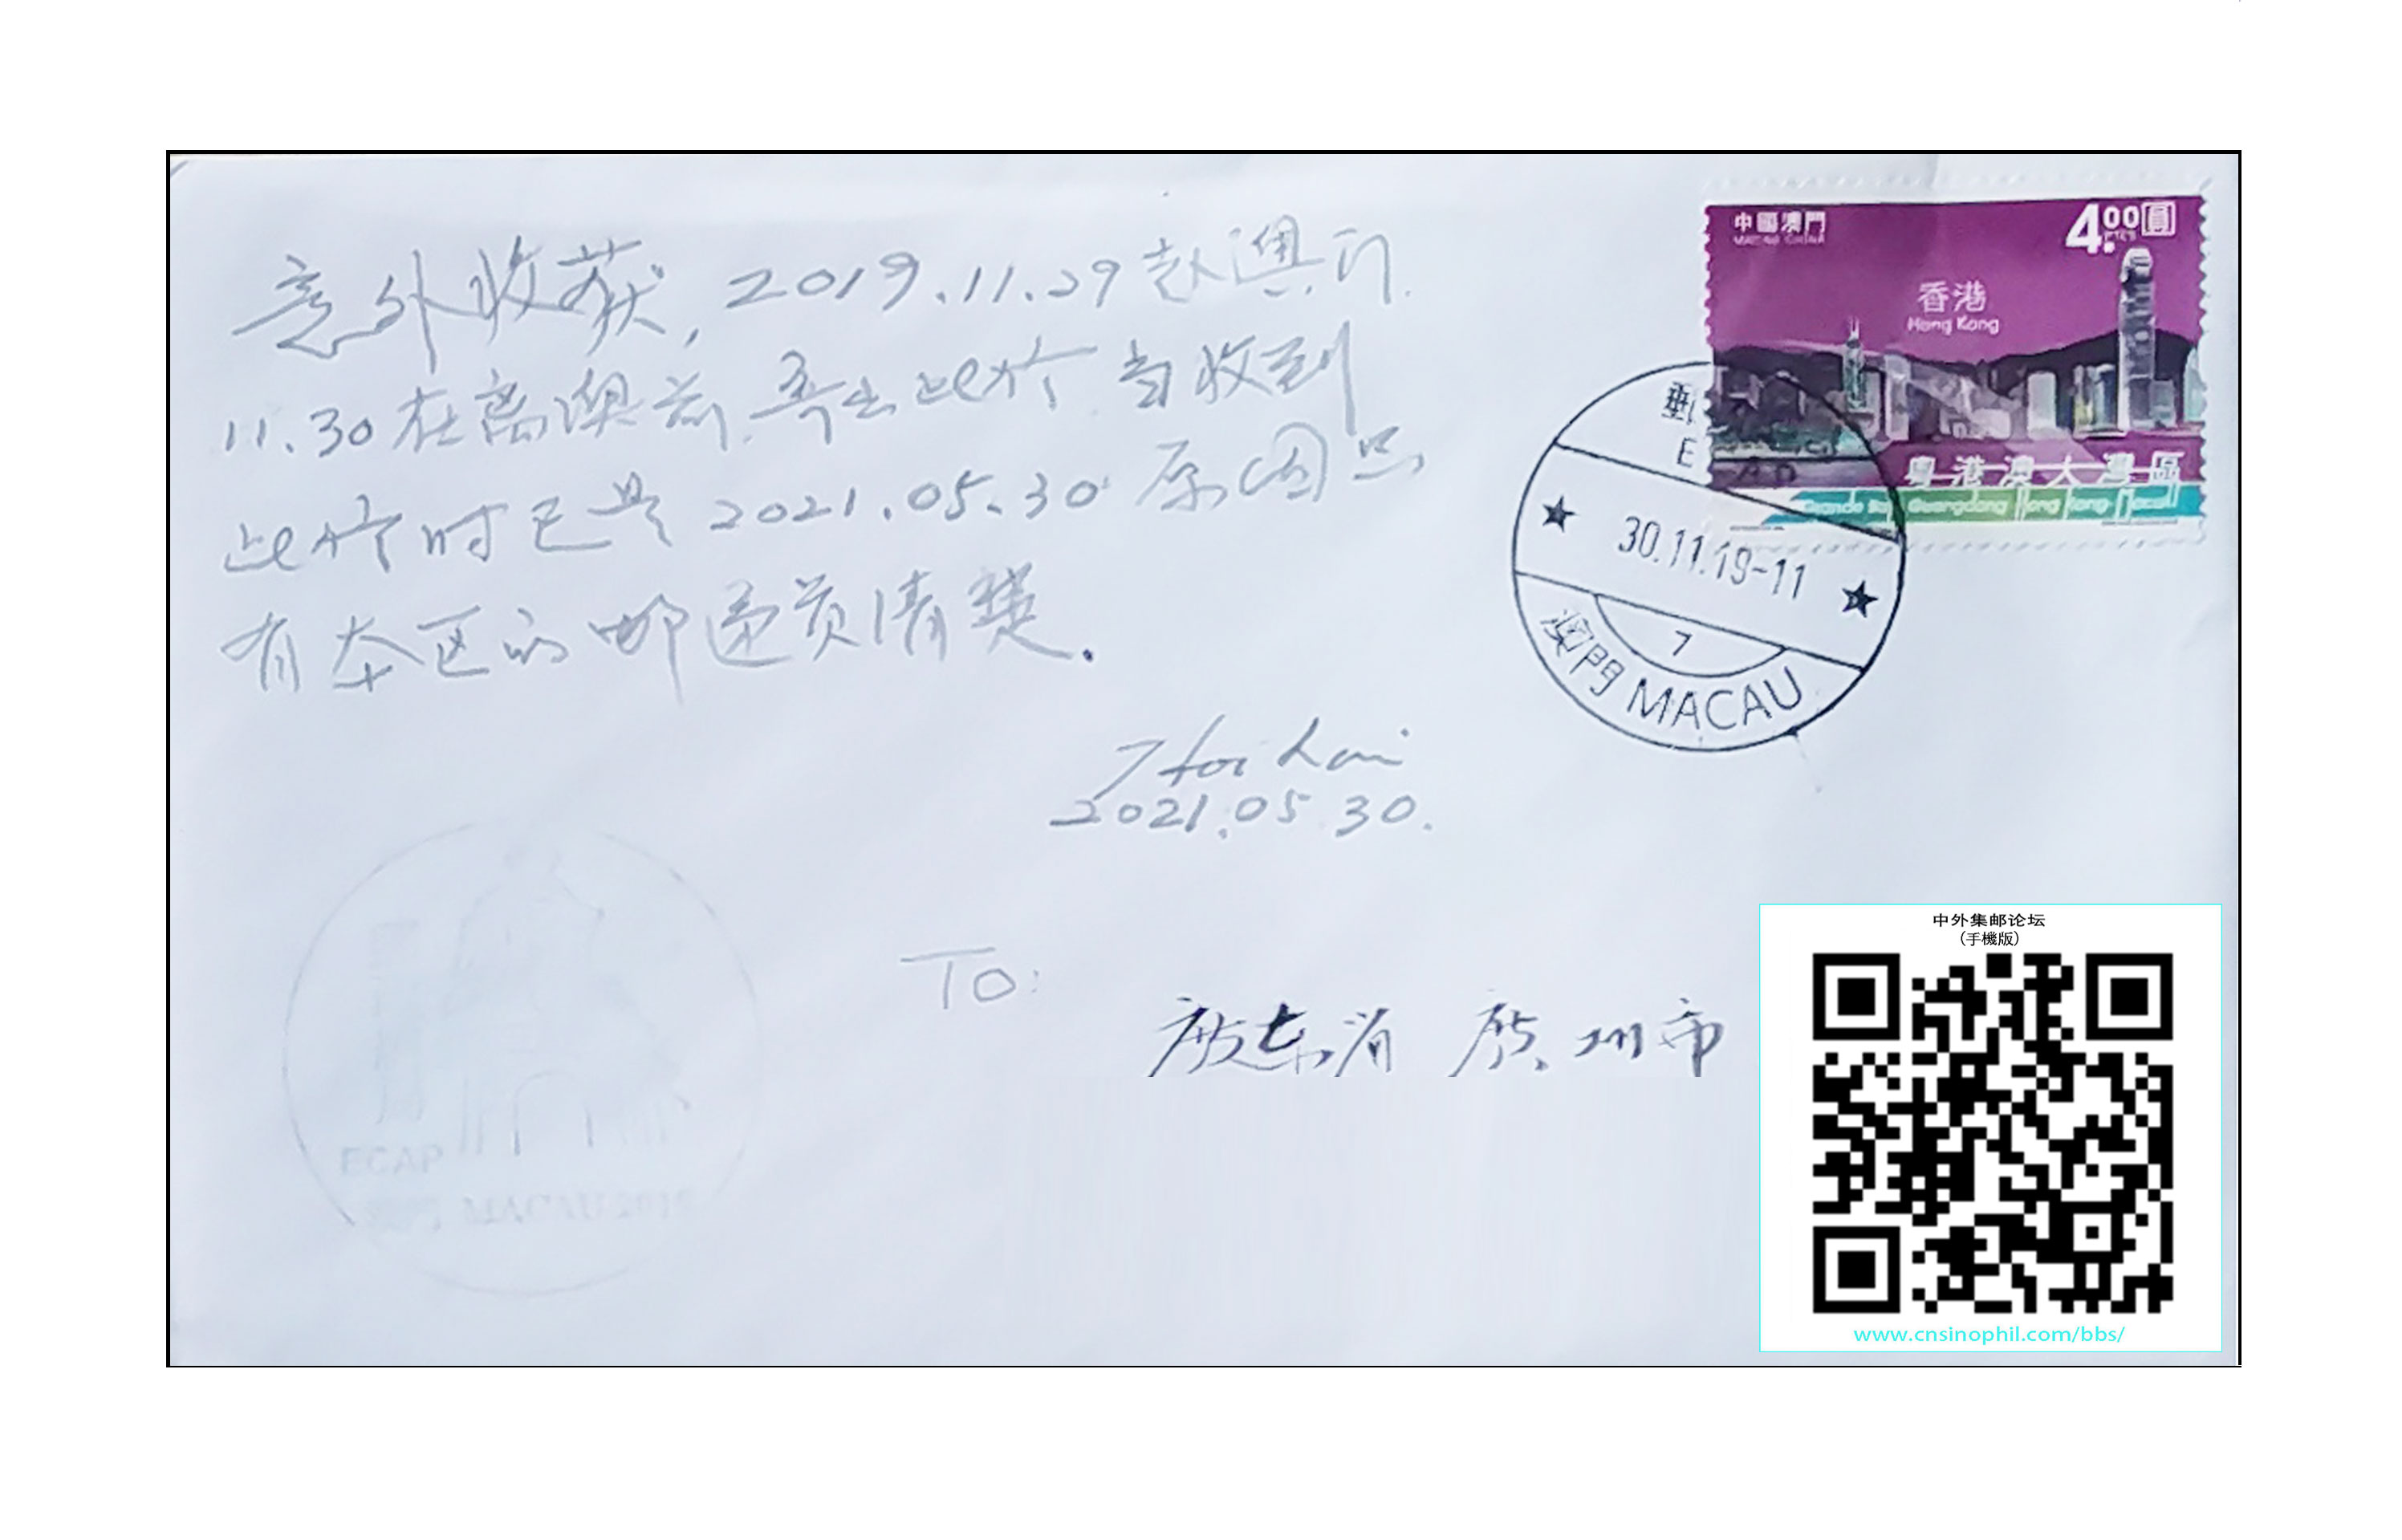 意外收获, 2019.11.29 赴澳门.
11.30 在离澳前. 寄出此信. 当收到
此信时已是 2021.05.30. 原因只
有本区的邮递员清楚.
Hoi Lam
2021.05.30.
TO:
广东省 广州市
中國澳門
MACAU CHINA
4.00圓
PTCS
香港
Hong Kong
粵港澳大灣區
Grande Baía Guangdong Hong Kong Macau
郵
30.11.19-11
7
澳門 MACAU
ECAP
澳門 MACAU 2019
中外集邮论坛
(手機版)
www.cnsinophil.com/bbs/